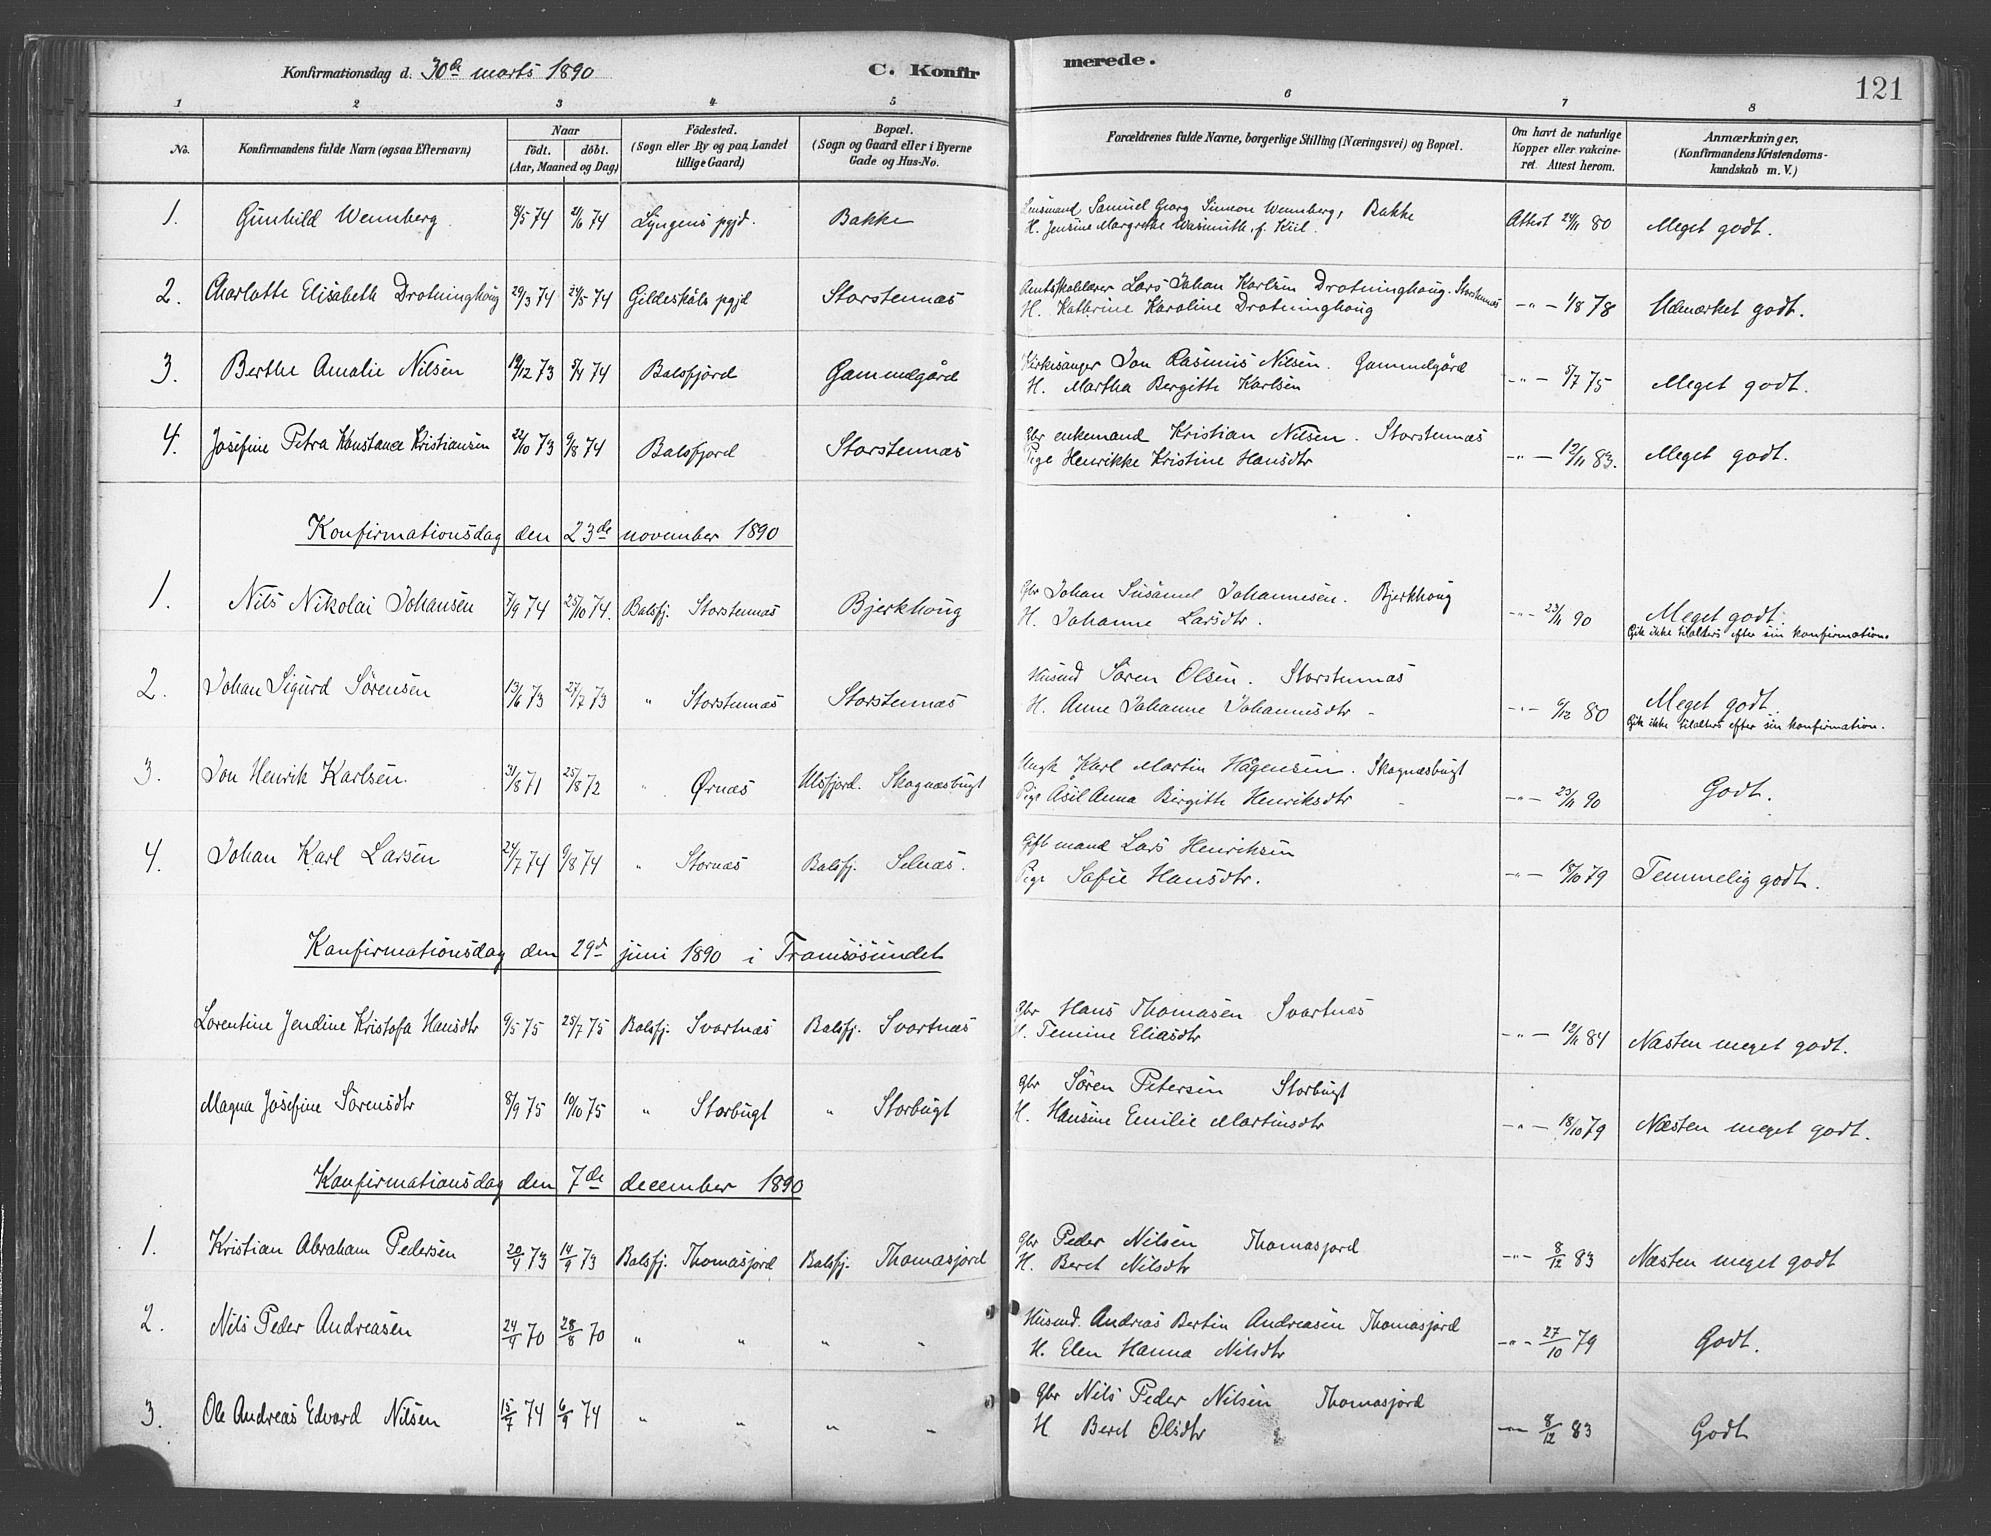 Konfirmationsdag d. 30de marts 1890 C. Konfirmerede. 121
1 2 3 4 5 6 7 8
No. Konfirmandens fulde Navn (ogsaa Efternavn) Naar födt. döbt. (Aar, Maaned og Dag) Födested. (Sogn eller By og paa Landet tillige Gaard) Bopæl. (Sogn og Gaard eller i Byerne Gade og Hus-No. Forældrenes fulde Navne, borgerlige Stilling (Næringsvei) og Bopæl. Om havt de naturlige Kopper eller vakcineret. Attest herom. Anmærkninger, (Konfirmandens Kristendomskundskab m. V.)
1. Gunhild Wennberg 8/5 74 21/6 74 Lyngens pgjd. Bakke Lensmand Samuel Georg Simeon Wennberg, Bakke Attest 24/11 80 Meget godt.
H. Jensine Margrethe Wasmuth, f. Kiil.
2. Charlotte Elisabeth Drotninghoug 29/3 74 24/5 74 Gildeskåls pgjd Storstennæs Amtsskolelærer Lars Johan Karlsen Drotninghoug. Storstennæs -"- 1/8 78 Udmærket godt.
H. Kathrine Karoline Drotninghoug
3. Berthe Amalie Nilsen 19/12 73 5/4 74 Balsfjord Gammelgård Kirkesanger Jon Rasmus Nilsen. Gammelgård -"- 5/7 75 Meget godt.
H. Martha Bergitte Karlsen
4. Josefine Petra Konstance Kristiansen 22/10 73 9/8 74 Balsfjord Storstennæs Gbr enkemand Kristian Nilsen. Storstennæs -"- 12/11 83. Meget godt.
Pige Henrikke Kristine Hansdtr
Konfirmationsdag den 23de november 1890
1. Nils Nikolai Johansen 7/9 74 25/10 74. Balsfj. Storstennæs Bjerkhoug Gbr Johan Susamel Johannesen. Bjerkhoug -"- 23/11 90 Meget godt.
H. Johanne Larsdtr. Gik ikke tilalters efter sin konfirmation.
2. Johan Sigurd Sørensen 13/6 73 27/7 73 " Storstennæs Storstennæs Husmd Søren Olsen. Storstennæs -"- 6/12 80 Meget godt.
H. Anne Johanne Johannesdtr - Gik ikke tilalters efter sin konfirmation.
3. Jon Henrik Karlsen. 31/8 71 25/8 72 " Ørnæs Ulsfjord. Skognæsbugt Ungk Karl Martin Hågensen. Skognæsbugt -"- 23/11 90 Godt.
Pige Åsil Anna Birgitte Henriksdtr -
4. Johan Karl Larsen 24/7 74 9/8 74 " Stornæs Balsfj. Selnæs. Gift mand Lars Henriksen -"- 18/10 79 Temmelig godt.
Pige Sofie Hansdtr.
Konfirmationsdag den 29d juni 1890 i Tromsøsundet
Lorentine Jendine Kristofa Hansdtr 9/5 75 25/7 75 Balsfj. Svartnæs Balsfj. Svartnæs Gbr Hans Thomasen Svartnæs -"- 12/11 84 Næsten meget godt.
H. Temine Eliasdtr
Magna Josefine Sørensdtr 8/9 75 10/10 75 " Storbugt " Storbugt Gbr Søren Petersen Storbugt -"- 18/10 79 Næsten meget godt.
H. Hansine Emilie Martinsdtr
Konfirmationsdag den 7de december 1890
1. Kristian Abraham Pedersen 20/4 73 14/9 73 Balsfj. Thomasjord Balsfj. Thomasjord Gbr Peder Nilsen Thomasjord -"- 8/12 83 Næsten meget godt
H. Beret Nilsdtr
2. Nils Peder Andreasen 24/4 70 28/8 70 " " " " Husmd. Andreas Bertin Andreasen Thomasjord -"- 27/10 79 Godt.
H. Elen Hanna Nilsdtr
3. Ole Andreas Edvard Nilsen 15/7 74 6/9 74 " " " " Gbr Nils Peder Nilsen Thomasjord -"- 8/12 83 Godt
H Beret Olsdtr